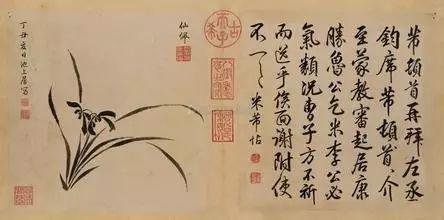 芾頓首再拜左丞
鈞席芾頓首介
至蒙教審起居康
勝魯公乞米李公必
氣類況曹子方不祈
而送乎俟面謝附使
不一一 米芾帖
古希天子
仙佩
丁丑夏日池上居寫